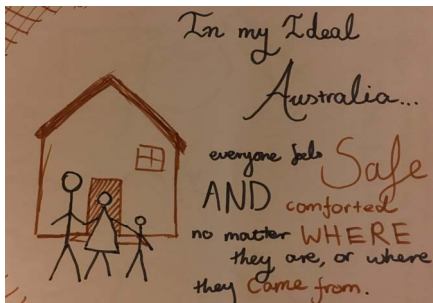 In my Ideal
Australia...
everyone feels Safe
AND comforted
no matter WHERE
they are, or where
they came from.